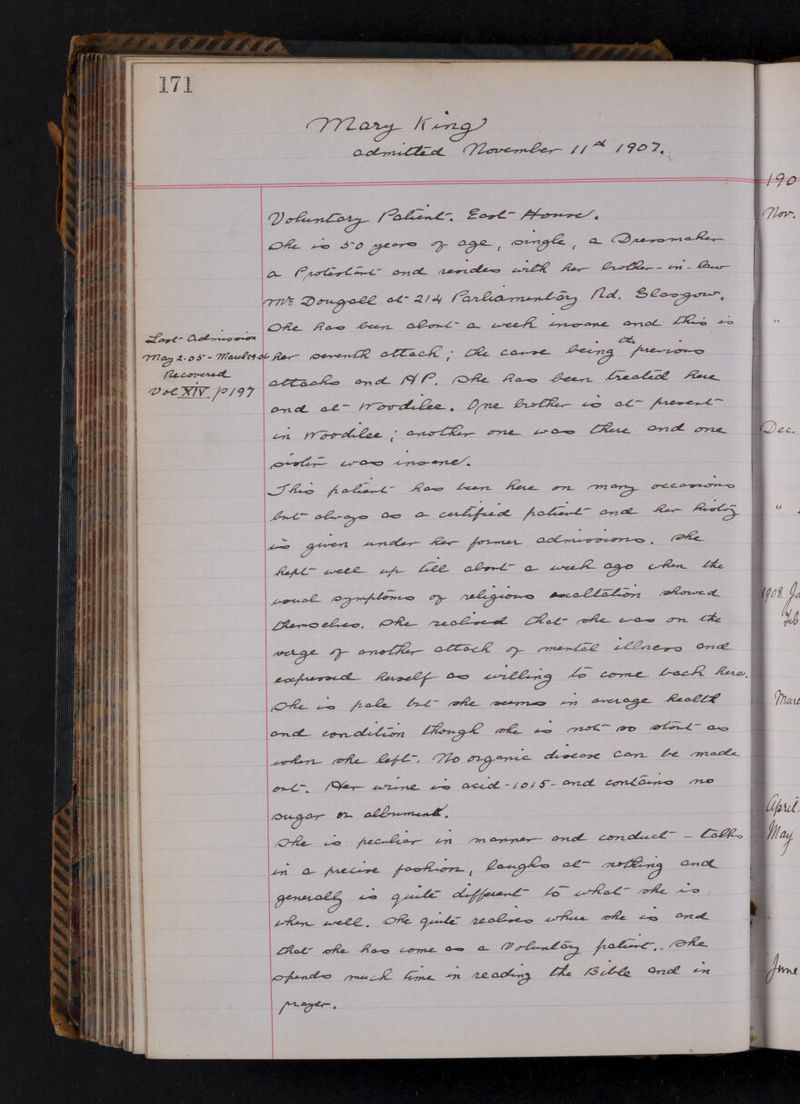 171
Mary King
admitted November 11th 1907.
Voluntary Patient. East House.
She is 50 years of age, single, a Dressmaker
a Protestant and resides with her brother-in-law
Mr Dougall at 214 Parliamentary Rd. Glasgow.
She has been about a week insane and this is
her seventh attack; the cause being the previous
attacks and H P. She has been treated here
and at Woodilee. One brother is at present
in Woodilee; another one was there and one
sister was insane.
Last Admission
May 2.05 -
Recovered
Vol XIV p197
This patient has been here on many occasions
but always as a certified patient and her history
is given under her former admissions. She
kept well up till about a week ago when the
usual symptoms of religious exaltation showed
themselves. She realised that she was on the
verge of another attack of mental illness and
expressed herself as willing to come back here.
She is pale but she seems in average health
and condition though she is not so stout as
when she left. No organic disease can be made
out. Her urine is acid - 1015 - and contains no
sugar or albumen.
She is peculiar in manner and conduct - talks
in a precise fashion, laughs at nothing and
generally is quite different to what she is
when well. She quite realises where she is and
that she has come as a Voluntary patient. She
spends much time in reading the Bible and in
prayer.
190
Nov.
"
Dec.
"
1908. Ja
Feb
Marc
April
May
June